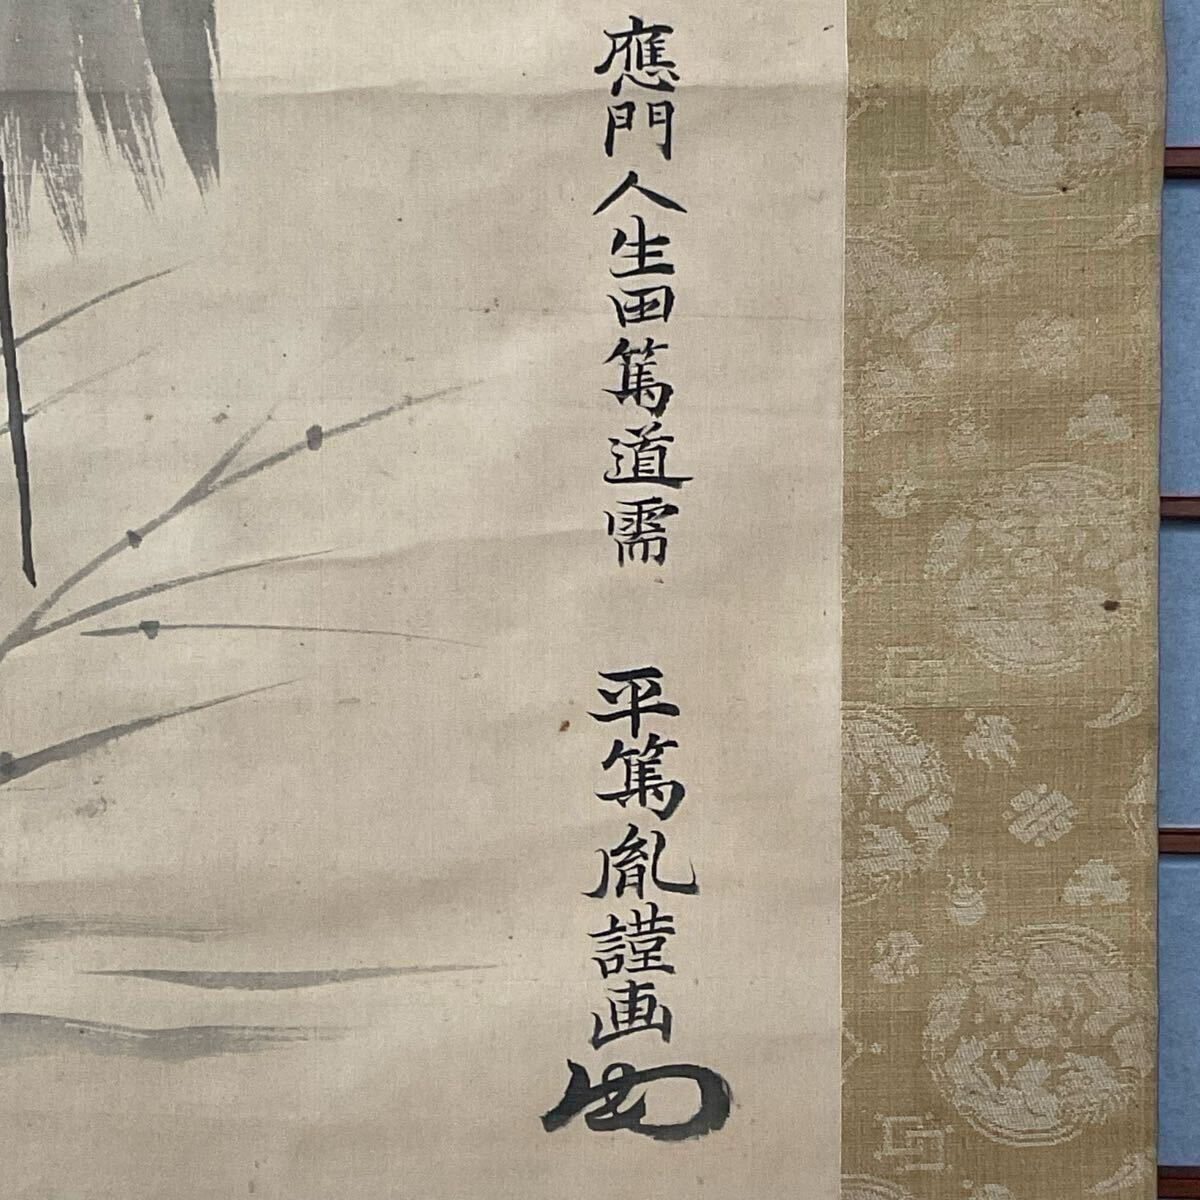 應門人生田篤道需　平篤胤謹画